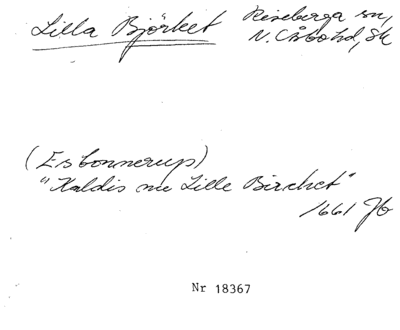 Lilla Björket Riseberga sn,
N. Åsbo hd, Sk
(Esbonnerup)
"Kaldis nu Lille Birchet"
1661 Jb
Nr 18367